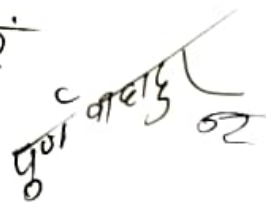 पूर्ण वाहादुर